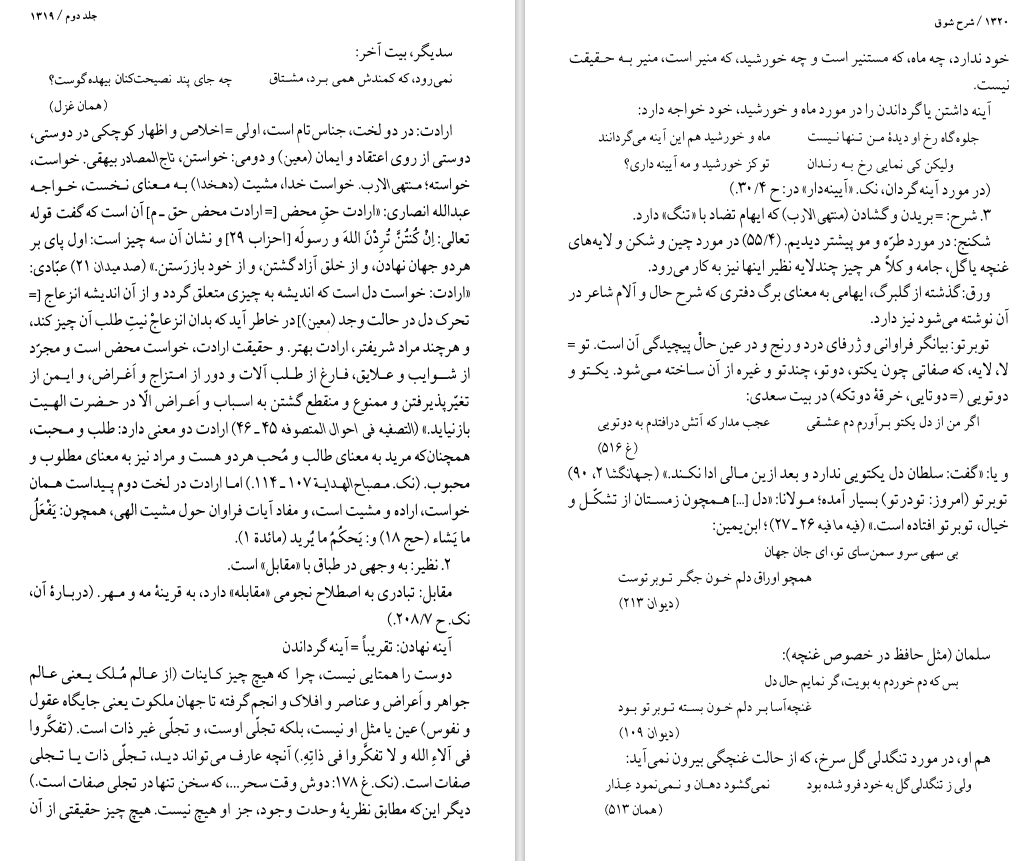 جلد دوم / ۱۳۱۹
سدیگر، بیت آخر:
نمی‌رود، که کمندش همی بـرد، مشـتاق چه جای پند نصیحت‌کنان بیهده‌گوست؟
(همان غزل)
ارادت: در دو لخت، جناس تام است، اولی = اخلاص و اظهار کوچکی در دوستی،
دوستی از روی اعتقاد و ایمان (معین) و دومی: خواستن، تاج‌المصادر بیهقی. خواست،
خواسته؛ منتهی‌الارب. خواست خدا، مشیت (دهخدا) بـه مـعنای نـخست، خـواجـه
عبدالله انصاری: «ارادت حقِ محض [= ارادت محض حق ـ م] آن است که گفت قوله
تعالی: اِنْ کُنتُنَّ تُرِدْنَ اللهَ و رسولَه [احزاب ۲۹] و نشان آن سه چیز است: اول پای بر
هر دو جهان نهادن، و از خلق آزاد گشتن، و از خود باز رَستن.» (صد میدان ۲۱) عبّادی:
«ارادت: خواست دل است که اندیشه به چیزی متعلق گردد و از آن اندیشه انزعاج [=
تحرک دل در حالت وجد (معین)] در خاطر آید که بدان انزعاجْ نیتِ طلب آن چیز کند،
و هرچند مراد شریفتر، ارادت بهتر. و حقیقت ارادت، خواست محض است و مجرّد
از شـوایب و علایق، فـارغ از طـلب آلات و دور از امـتزاج و اَغـراض، و ایـمن از
تغیّرپذیرفتن و ممنوع و منقطع گشتن به اسباب و اَعـراض الّا در حـضرت الهـیت
بازنیاید.» (التصفیه فی احوال المتصوفه ۴۵ ـ ۴۶) ارادت دو معنی دارد: طلب و مـحبت،
همچنان‌که مرید به معنای طالب و مُحب هر دو هست و مراد نیز به معنای مطلوب و
محبوب. (نک. مـصباح‌الهدایـة ۱۰۷ ـ ۱۱۴.) امـا ارادت در لخت دوم پـیداست هـمان
خواست، اراده و مشیت است، و مفاد آیات فراوان حول مشیت الهی، همچون: یَفْعَلُ
ما یَشاء (حج ۱۸) و: یَحکُمُ ما یُرید (مائدة ۱).
۲. نظیر: به وجهی در طباق با «مقابل» است.
مقابل: تبادری به اصطلاح نجومی «مقابله» دارد، به قرینهٔ مه و مـهر. (دربـارهٔ آن،
نک. ح ۲۰۸/۷.)
آینه نهادن: تقریباً = آینه گرداندن
دوست را همتایی نیست، چرا که هیچ چیز کـاینات (از عـالم مُـلک یـعنی عـالم
جواهر و اَعراض و عناصر و افلاک و انجم گرفته تا جهان ملکوت یعنی جایگاه عقول
و نفوس) عین یا مثل او نیست، بلکه تجلّی اوست، و تجلّی غیر ذات است. (تفکَّروا
فی آلاءِ الله و لا تفکَّروا فی ذاتِهِ.) آنچه عارف می‌تواند دیـد، تـجلّی ذات یـا تـجلی
صفات است. (نک. غ ۱۷۸: دوش وقت سحر...، که سخن تنها در تجلی صفات است.)
دیگر این‌که مطابق نظریهٔ وحدت وجود، جز او هیچ نیست. هیچ چیز حقیقتی از آن
۱۳۲۰ / شرح شوق
خود ندارد، چه ماه، که مستنیر است و چه خورشید، که منیر است، منیر بـه حـقیقت
نیست.
آینه داشتن یا گرداندن را در مورد ماه و خورشید، خود خواجه دارد:
جلوه‌گاه رخ او دیدهٔ مـن تـنها نـیست ماه و خورشید هم این آینه می‌گردانند
ولیکن کی نمایی رخ بـه رنـدان تو کز خورشید و مه آیینه داری؟
(در مورد آینه‌گردان، نک. «آیینه‌دار» در: ح ۳۰/۴.)
۳. شرح: = بریدن و گشادن (منتهی الارب) که ایهام تضاد با «تنگ» دارد.
شکنج: در مورد طرّه و مو پیشتر دیدیم. (۵۵/۴) در مورد چین و شکن و لایه‌های
غنچه یا گل، جامه و کلاً هر چیز چندلایه نظیر اینها نیز به کار می‌رود.
ورق: گذشته از گلبرگ، ایهامی به معنای برگ دفتری که شرح حال و آلام شاعر در
آن نوشته می‌شود نیز دارد.
توبرتو: بیانگر فراوانی و ژرفای درد و رنج و در عین حالْ پیچیدگی آن است. تو =
لا، لایه، که صفاتی چون یکتو، دوتو، چندتو و غیره از آن سـاخته مـی‌شود. یکـتو و
دوتویی (= دوتایی، خرقهٔ دوتکه) در بیت سعدی:
اگر من از دل یکتو بـرآورم دم عشـقی عجب مدار که آتش درافتدم به دوتویی
(غ ۵۱۶)
و یا: «گفت: سلطان دل یکتویی ندارد و بعد ازین مـالی ادا نکـند.» (جـهانگشا ۲، ۹۰)
توبرتو (امروز: تودرتو) بسیار آمده؛ مـولانا: «دل [...] هـمچون زمسـتان از تشکّـل و
خیال، توبرتو افتاده است.» (فیه ما فیه ۲۶ ـ ۲۷)؛ ابن‌یمین:
بی سهی سرو سمن‌سای تو، ای جان جهان
همچو اوراق دلم خـون جگـر تـوبر توست
(دیوان ۲۱۳)
سلمان (مثل حافظ در خصوص غنچه):
بس که دم خوردم به بویت، گر نمایم حال دل
غنچه‌آسا بر دلم خـون بسـته توبرتو بـود
(دیوان ۱۰۹)
هم او، در مورد تنگدلی گل سرخ، که از حالت غنچگی بیرون نمی‌آید:
ولی ز تنگدلی گل به خود فرو شده بود نمی‌گشود دهـان و نـمی‌نمود عِـذار
(همان ۵۱۳)